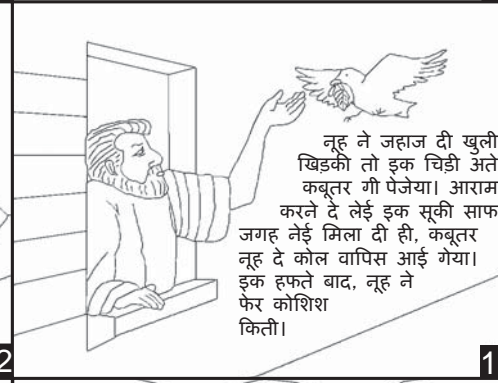 नूह ने जहाज दी खुली
खिड़की तो इक चिड़ी अते
कबूतर गी पेजेया। आराम
करने दे लेई इक सूकी साफ
जगह नेई मिला दी ही, कबूतर
नूह दे कोल वापिस आई गेया।
इक हफते बाद, नूह ने
फेर कोशिश
किती।
2
1